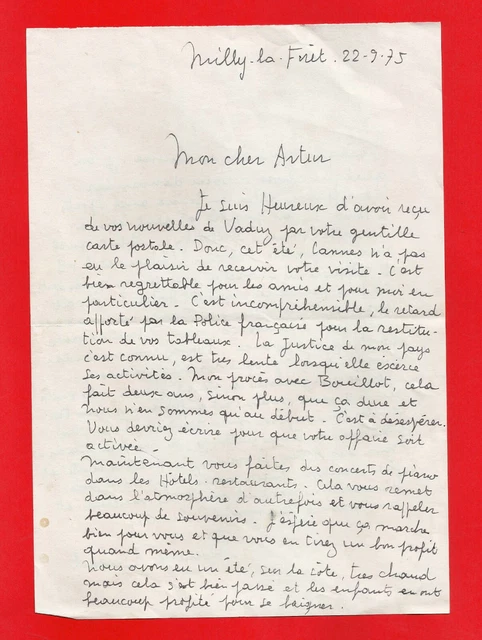 Milly-la-Forêt. 22-9-75
Mon cher Artur
Je suis Heureux d'avoir reçu
de vos nouvelles de Vaduz par votre gentille
carte postale. Donc, cet été, Cannes n'a pas
eu le plaisir de recevoir votre visite. C'est
bien regrettable pour les amis et pour moi en
particulier. C'est incompréhensible, le retard
apporté par la Police française pour la restitu-
tion de vos tableaux. La Justice de mon pays
c'est connu, est très lente lorsqu'elle exerce
ses activités. Mon procès avec Bouillot, cela
fait deux ans, sinon plus, que ça dure et
nous n'en sommes qu'au début. C'est à désespérer.
Vous devriez écrire pour que votre affaire soit
activée.
Maintenant vous faites des concerts de piano
dans les Hôtels-restaurants. Cela vous remet
dans l'atmosphère d'autrefois et vous rappeler
beaucoup de souvenirs. J'espère que ça marche
bien pour vous et que vous en tirez un bon profit
quand même.
Nous avons eu un été, sur la côte, très chaud
mais cela s'est bien passé et les enfants en ont
beaucoup profité pour se baigner.